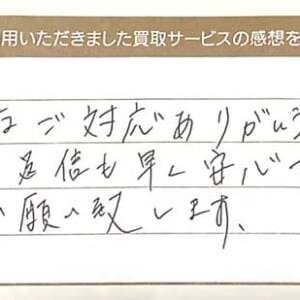 用いただきました買取サービスの感想を
なご対応ありがとう
返信も早く安心
願い致します。